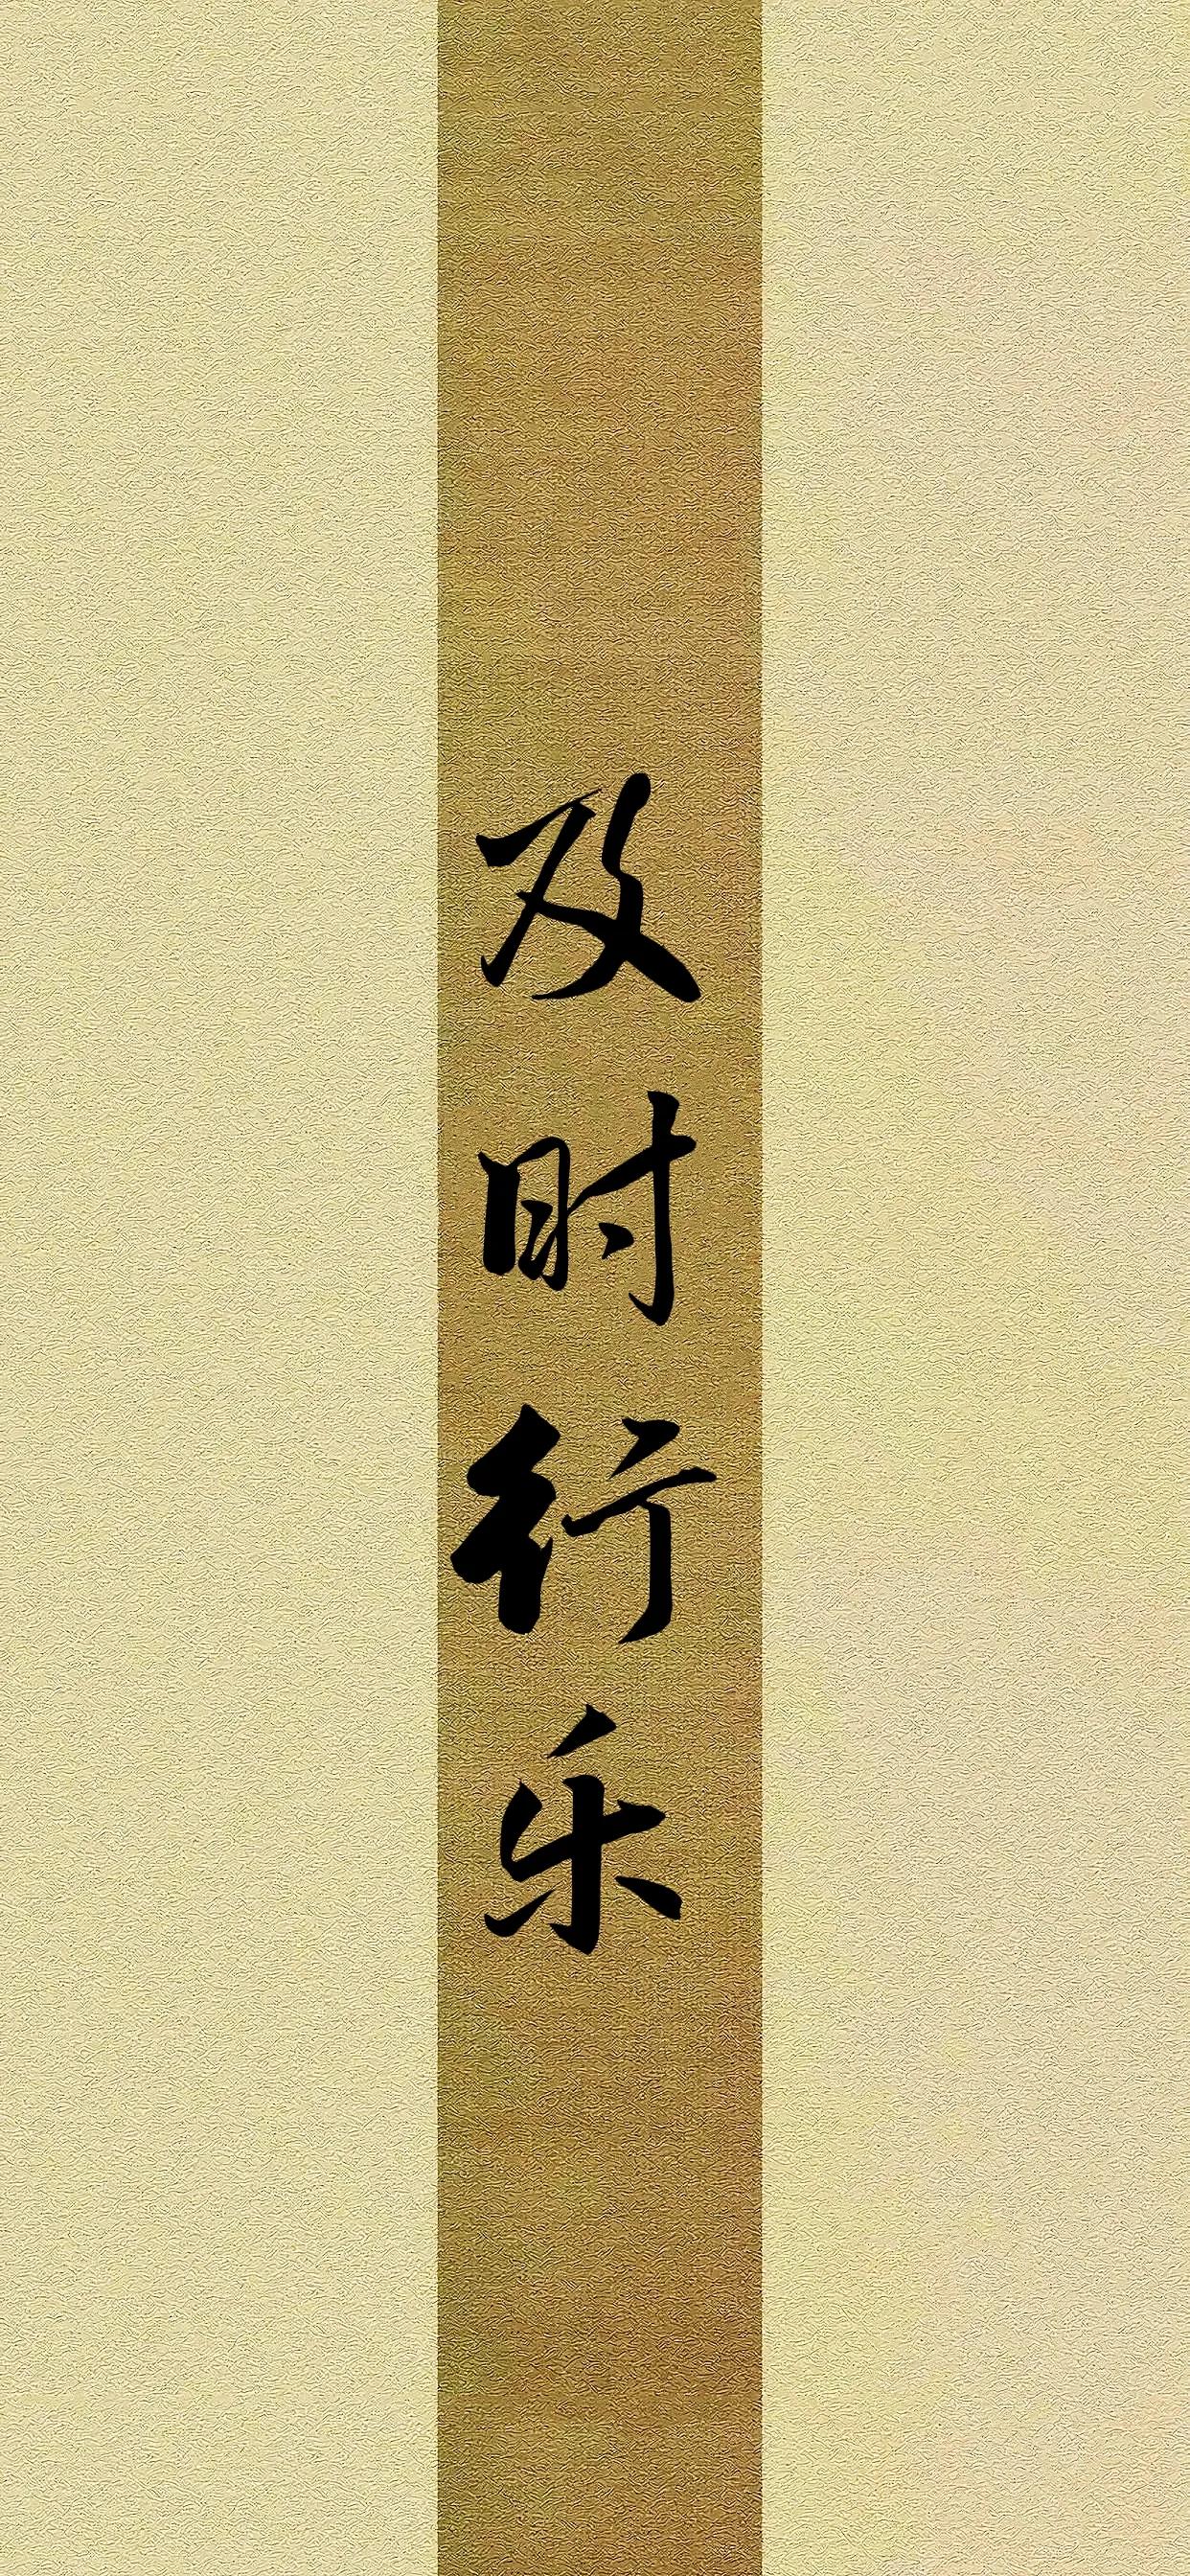 及时行乐